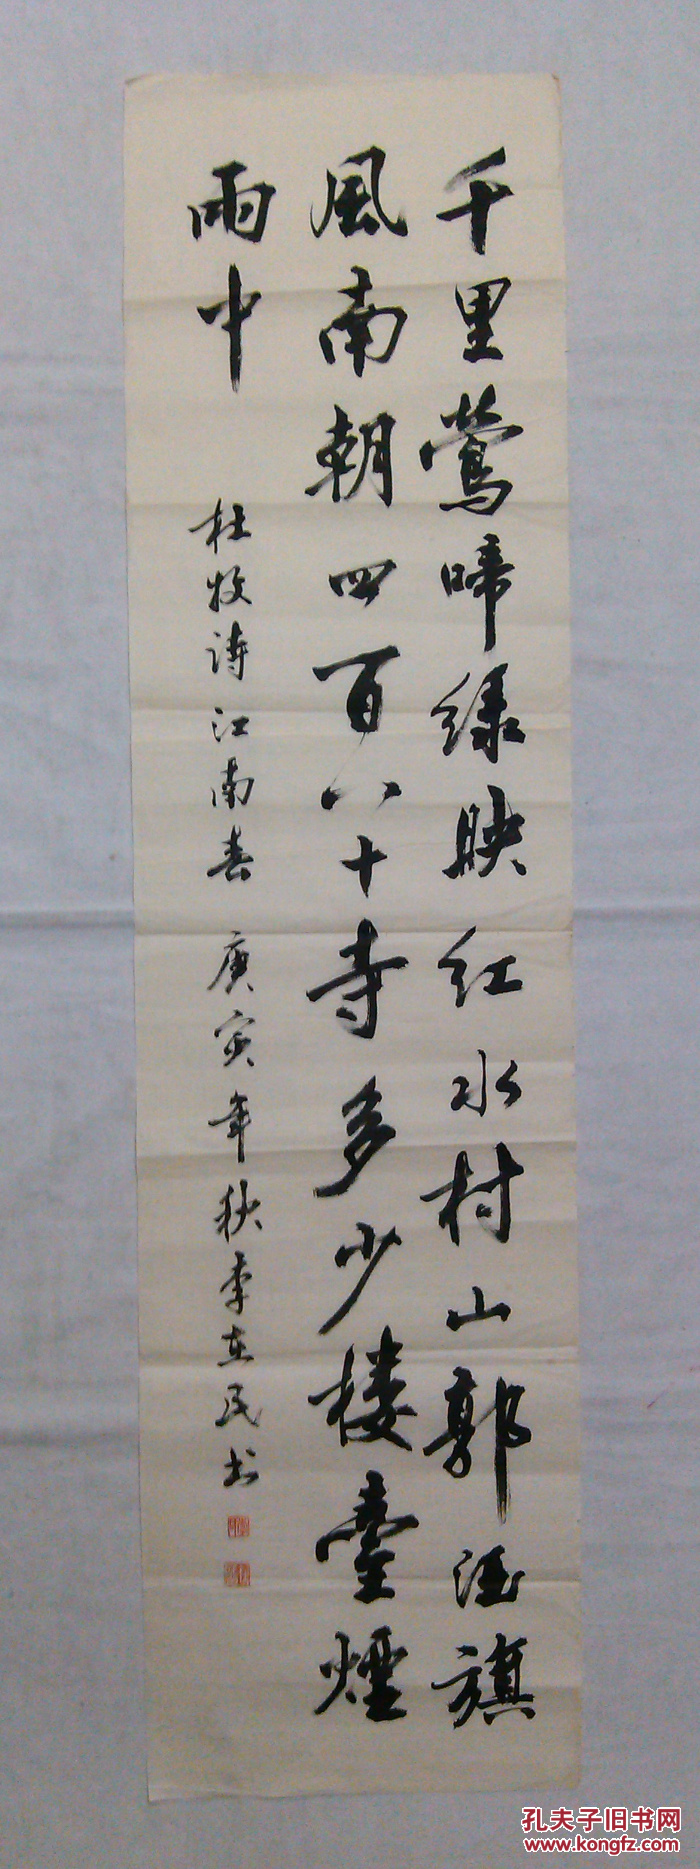 千里莺啼绿映红水村山郭酒旗
風南朝四百八十寺多少楼臺煙
雨中
杜牧诗江南春 庚寅年秋李在民书
孔夫子旧书网
www.kongfz.com